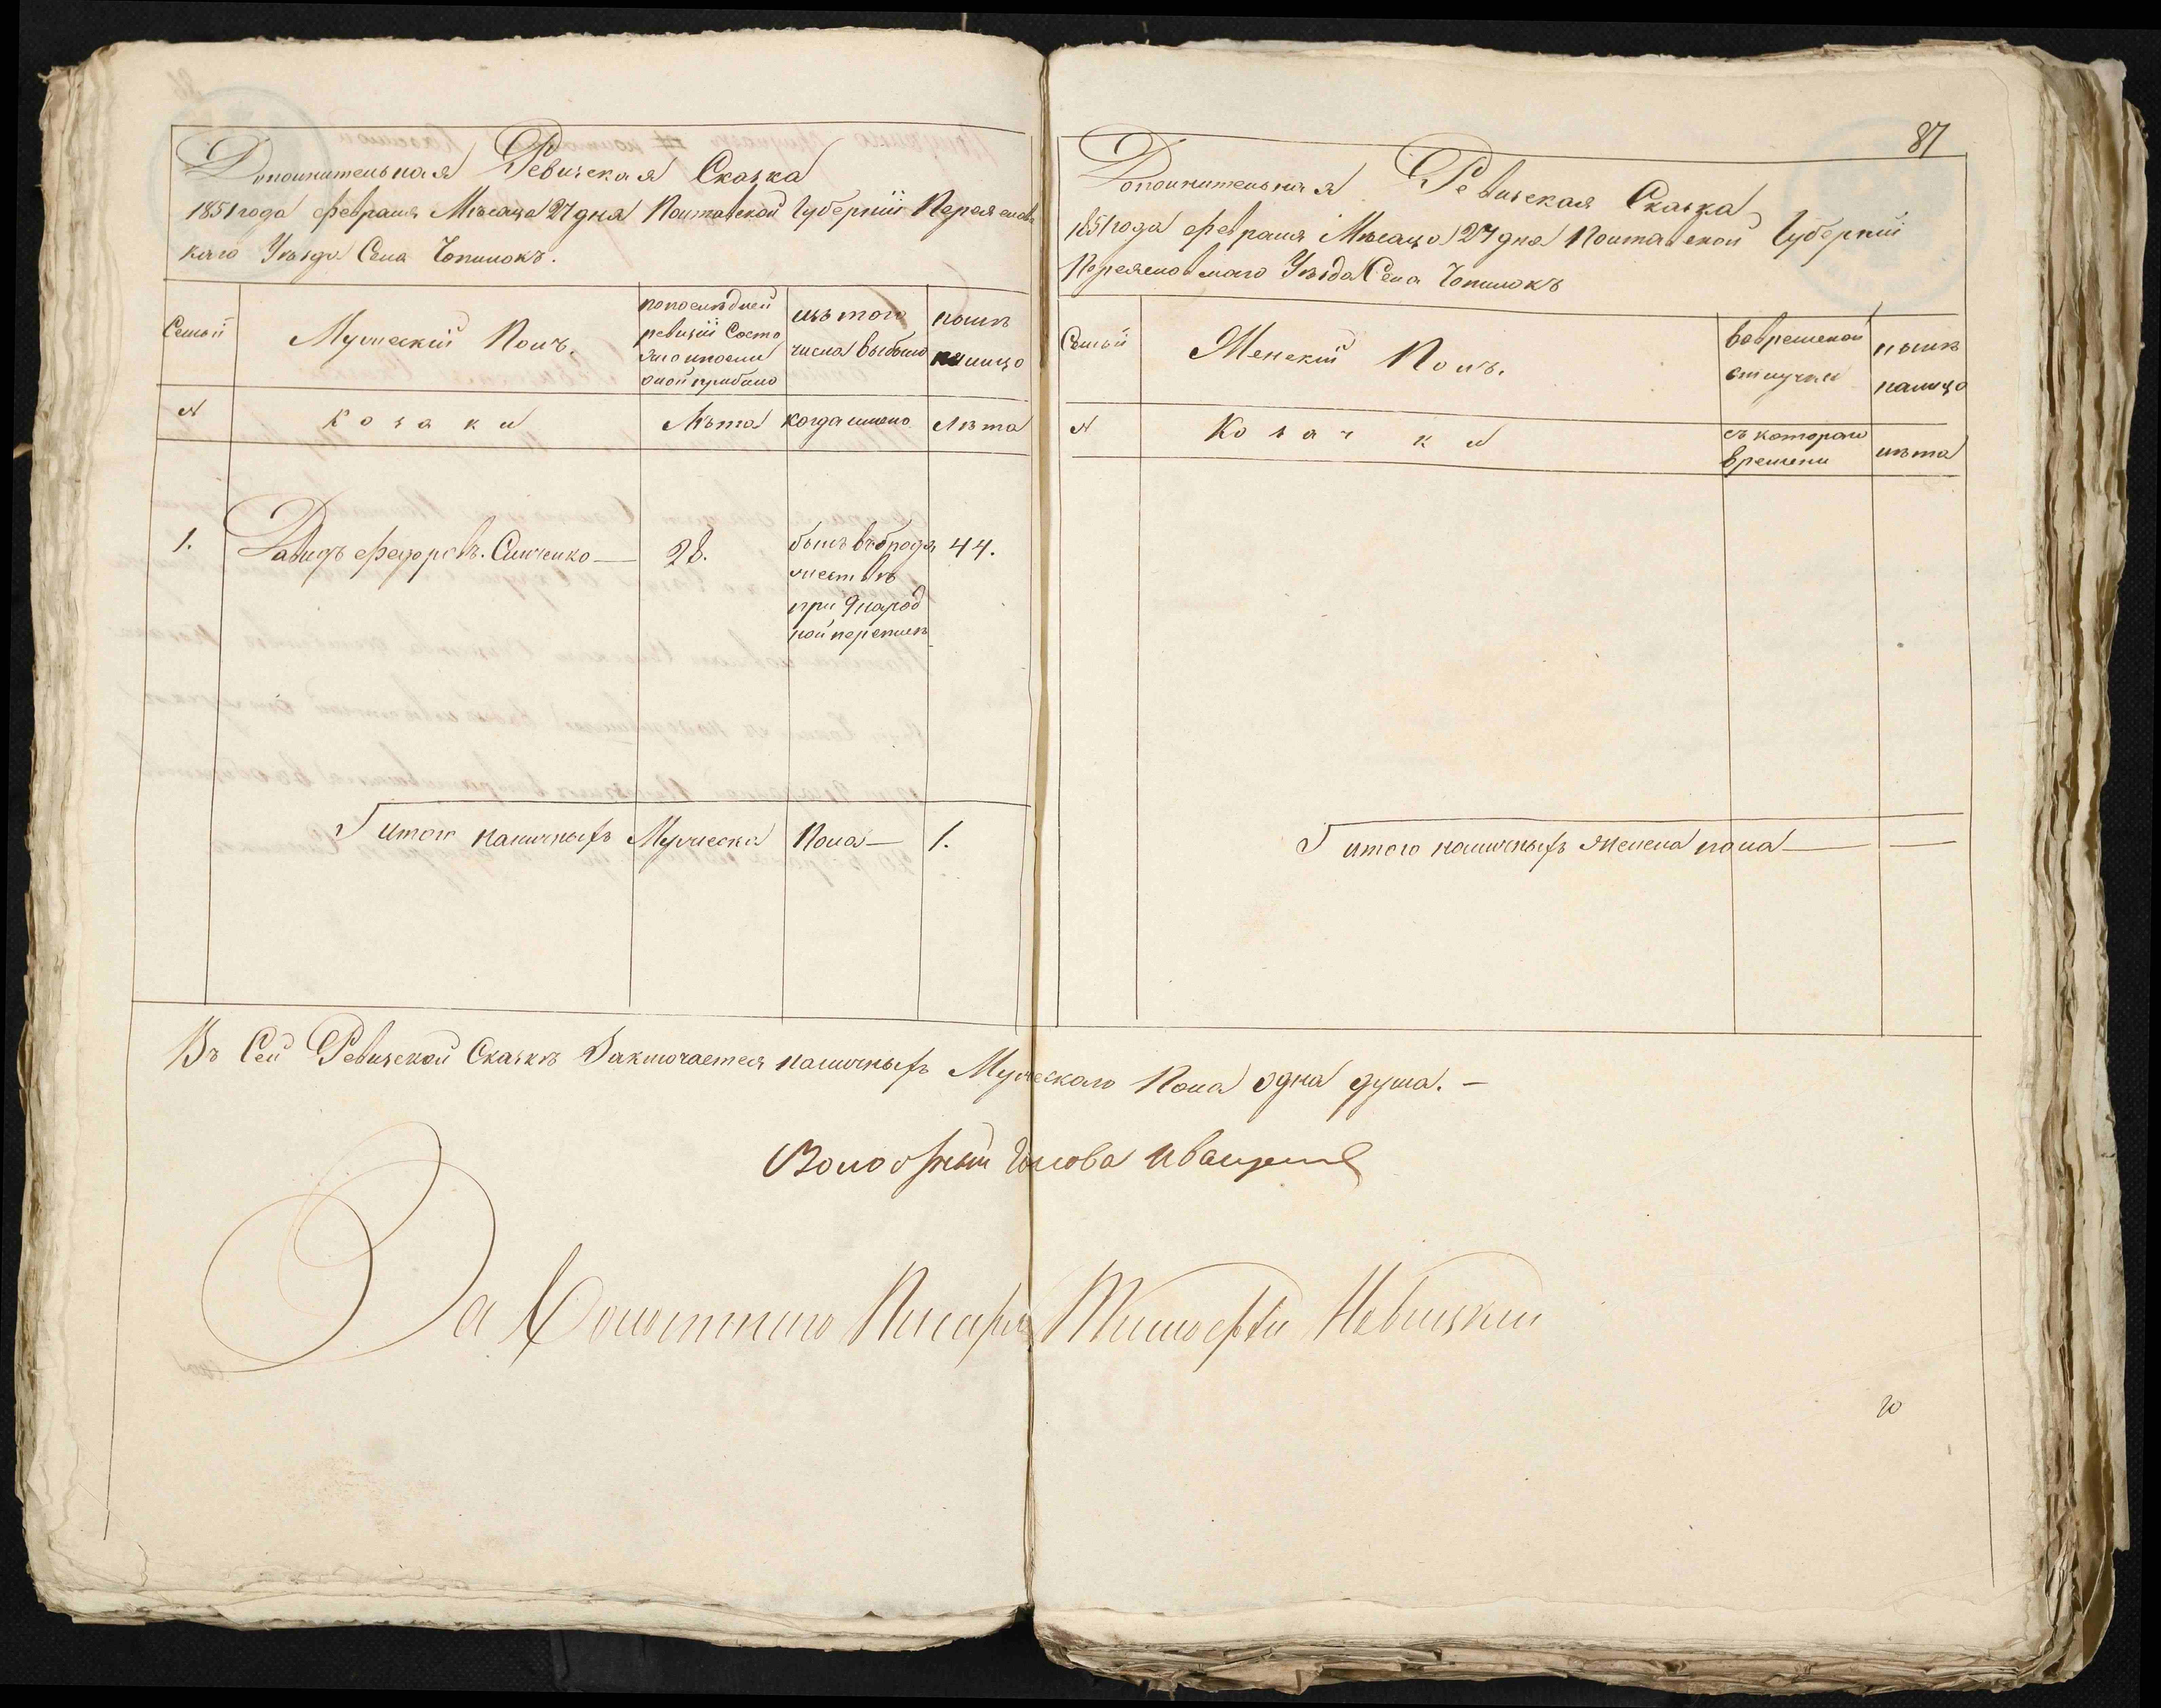 Дополнительная Ревизская Сказка
1851 года февраля Мѣсяца 27 дня Полтавской Губерніи Переяслав
каго Уѣзда Села Чопилокъ.
Семьи
Мужескій Полъ.
по послѣдней
ревизіи Состо
яло и после
оной прибыло
изъ того
числа выбыло
нынѣ
на лицо
№
Козаки
Лѣта
когда именно
Лѣта
1.
Давидъ Федоровъ. Синченко —
28.
былъ въ бродя
жествѣ
при 9 народ
ной переписи
44.
Итого наличныхъ Мужеска Пола — 1.
87
Дополнительная Ревизская Сказка
1851 года февраля Мѣсяца 27 дня Полтавской Губерніи
Переяславскаго Уѣзда Села Чопилокъ
Семьи
Женскій Полъ.
во временной
отлучки
нынѣ
налицо
№
Козачки
съ котораго
времени
лѣта
Итого наличныхъ женска пола — —
Въ Сей Ревизской Сказкѣ Заключается наличныхъ Мужескаго Пола одна душа. —
Волостный Голова Иващенко
За Волостнаго Писаря Тимофей Невицкій